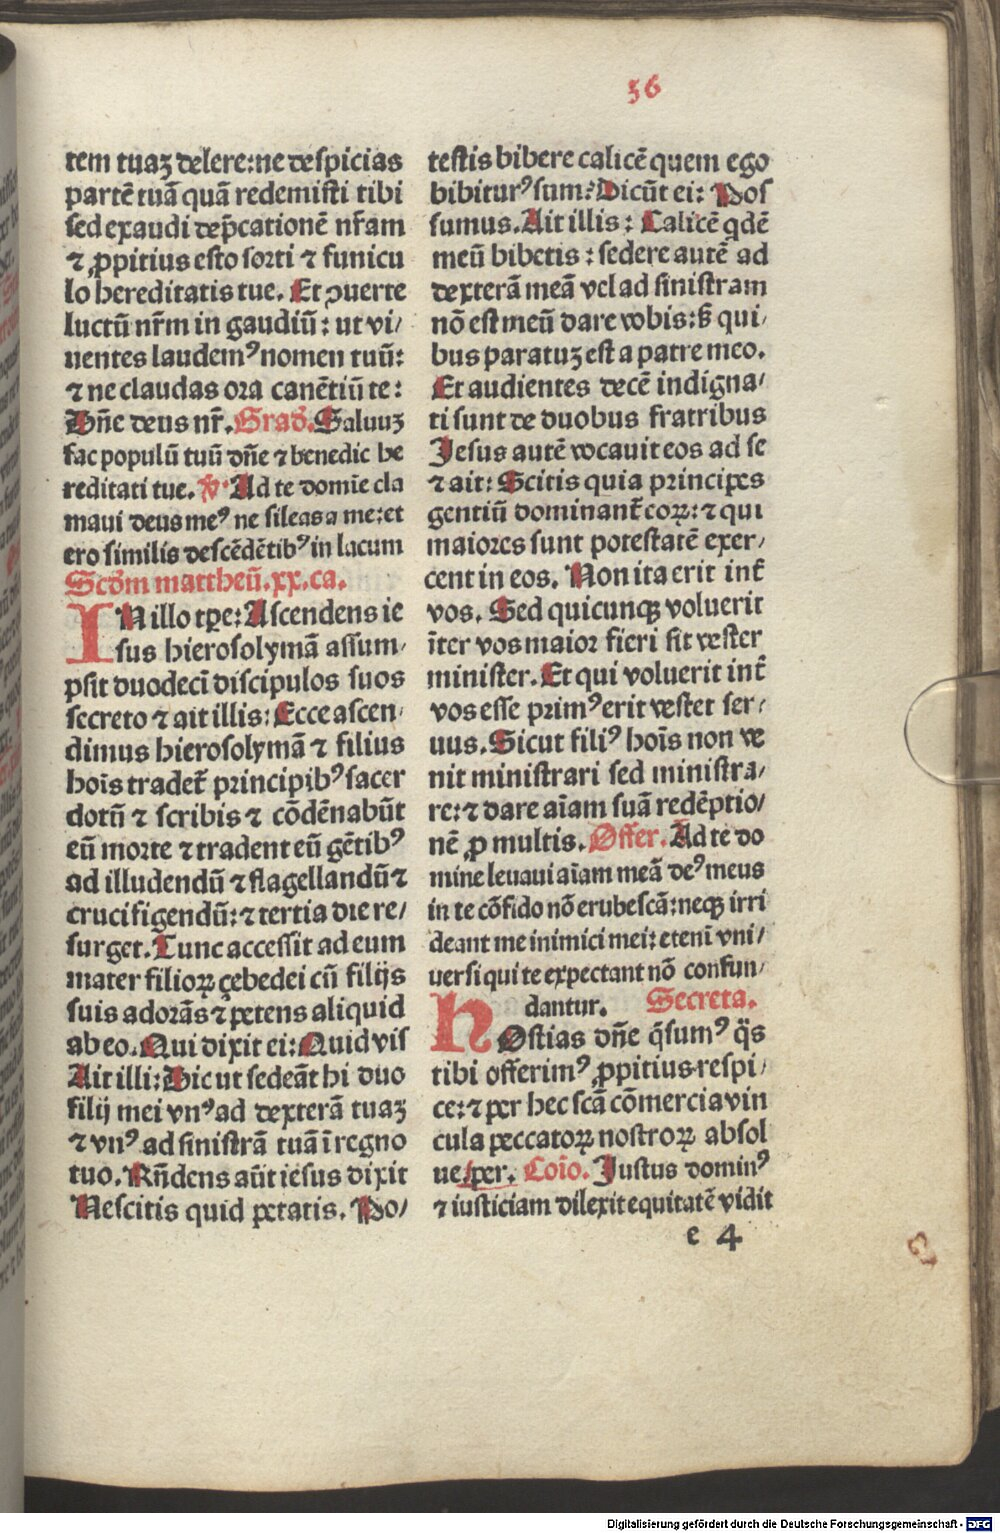 56
tem tuaꝫ delere:ne despicias
partē tuā quā redemisti tibi
sed exaudi dep̄cationē nr̄am
⁊ ꝓpitius esto sorti ⁊ funicu
lo hereditatis tue. Et ꝯuerte
luctū nr̄m in gaudiū: ut vi/
uentes laudemꝰ nomen tuū:
⁊ ne claudas ora canētiū te:
Dn̄e deus nr̄. Grad̄. Saluuꝫ
fac populū tuū dn̄e ⁊ benedic he
reditati tue. ℣. Ad te domīe cla
maui deus meꝰ ne sileas a me:et
ero similis descēdētibꝰ in lacum
Scd̄m mattheū.xx.ca.
IN illo tꝑe: Ascendens ie
sus hierosolymā assum/
psit duodecī discipulos suos
secreto ⁊ ait illis: Ecce ascen/
dimus hierosolymā ⁊ filius
hoīs tradet̄ principibꝰ sacer
dotū ⁊ scribis ⁊ cōdēnabūt
eū morte ⁊ tradent eū gētibꝰ
ad illudendū ⁊ flagellandū ⁊
crucifigendū: ⁊ tertia die re/
surget. Tunc accessit ad eum
mater filioꝝ çebedei cū filijs
suis adorās ⁊ petens aliquid
ab eo. Qui dixit ei: Quid vis
Ait illi: Dic ut sedeāt hi duo
filij mei vnꝰ ad dexterā tuaꝫ
⁊ vnꝰ ad sinistrā tuā ī regno
tuo. Rn̄dens aūt iesus dixit
Nescitis quid petatis. Po/
testis bibere calicē quem ego
bibiturꝰ sum: Dicūt ei: Pos
sumus. Ait illis: Calicē qdē
meū bibetis: sedere autē ad
dexterā meā vel ad sinistram
nō est meū dare vobis: ß qui/
bus paratuꝫ est a patre meo.
Et audientes decē indigna/
ti sunt de duobus fratribus
Jesus autē vocauit eos ad se
⁊ ait: Scitis quia principes
gentiū dominant̄ eoꝝ: ⁊ qui
maiores sunt potestatē exer/
cent in eos. Non ita erit int̄
vos. Sed quicunqꝫ voluerit
īter vos maior fieri sit vester
minister. Et qui voluerit int̄
vos esse primꝰ erit vester ser/
uus. Sicut filiꝰ hoīs non ve
nit ministrari sed ministra/
re: ⁊ dare aīam suā redēptio/
nē ꝓ multis. Offer. Ad te do
mine leuaui aīam meā deꝰ meus
in te cōfido nō erubescā: neqꝫ irri
deant me inimici mei: etenī vni/
uersi qui te expectant nō confun/
dantur. Secreta.
HOstias dn̄e q̄sumꝰ q̄s
tibi offerimꝰ ꝓpitius respi/
ce: ⁊ per hec scā cōmercia vin
cula peccatoꝝ nostroꝝ absol
ue/per. Coīo. Justus dominꝰ
⁊ iusticiam dilexit equitatē vidit
e 4
Digitalisierung gefördert durch die Deutsche Forschungsgemeinschaft - DFG